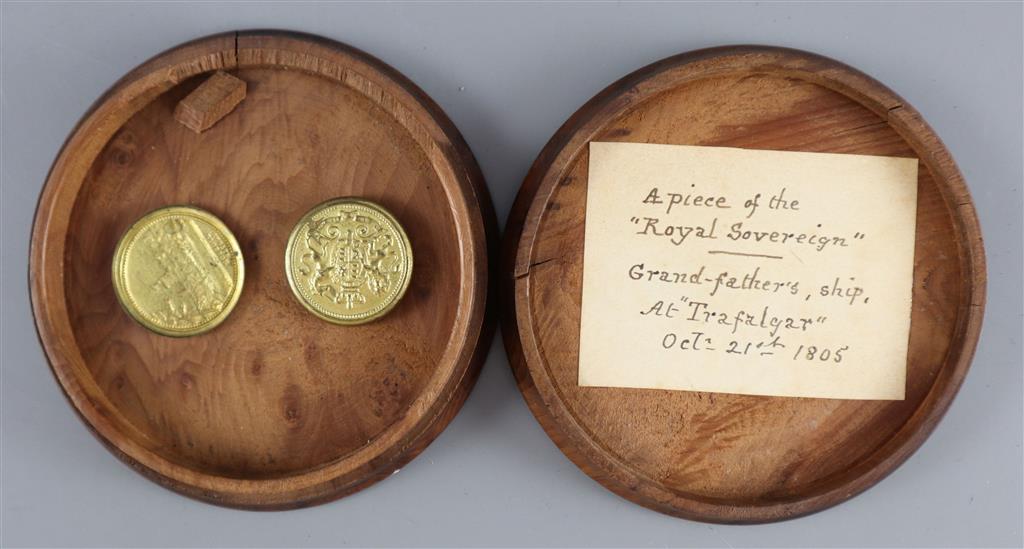 A piece of the
"Royal Sovereign"
Grand-father's, ship,
At "Trafalgar"
Octr 21st 1805